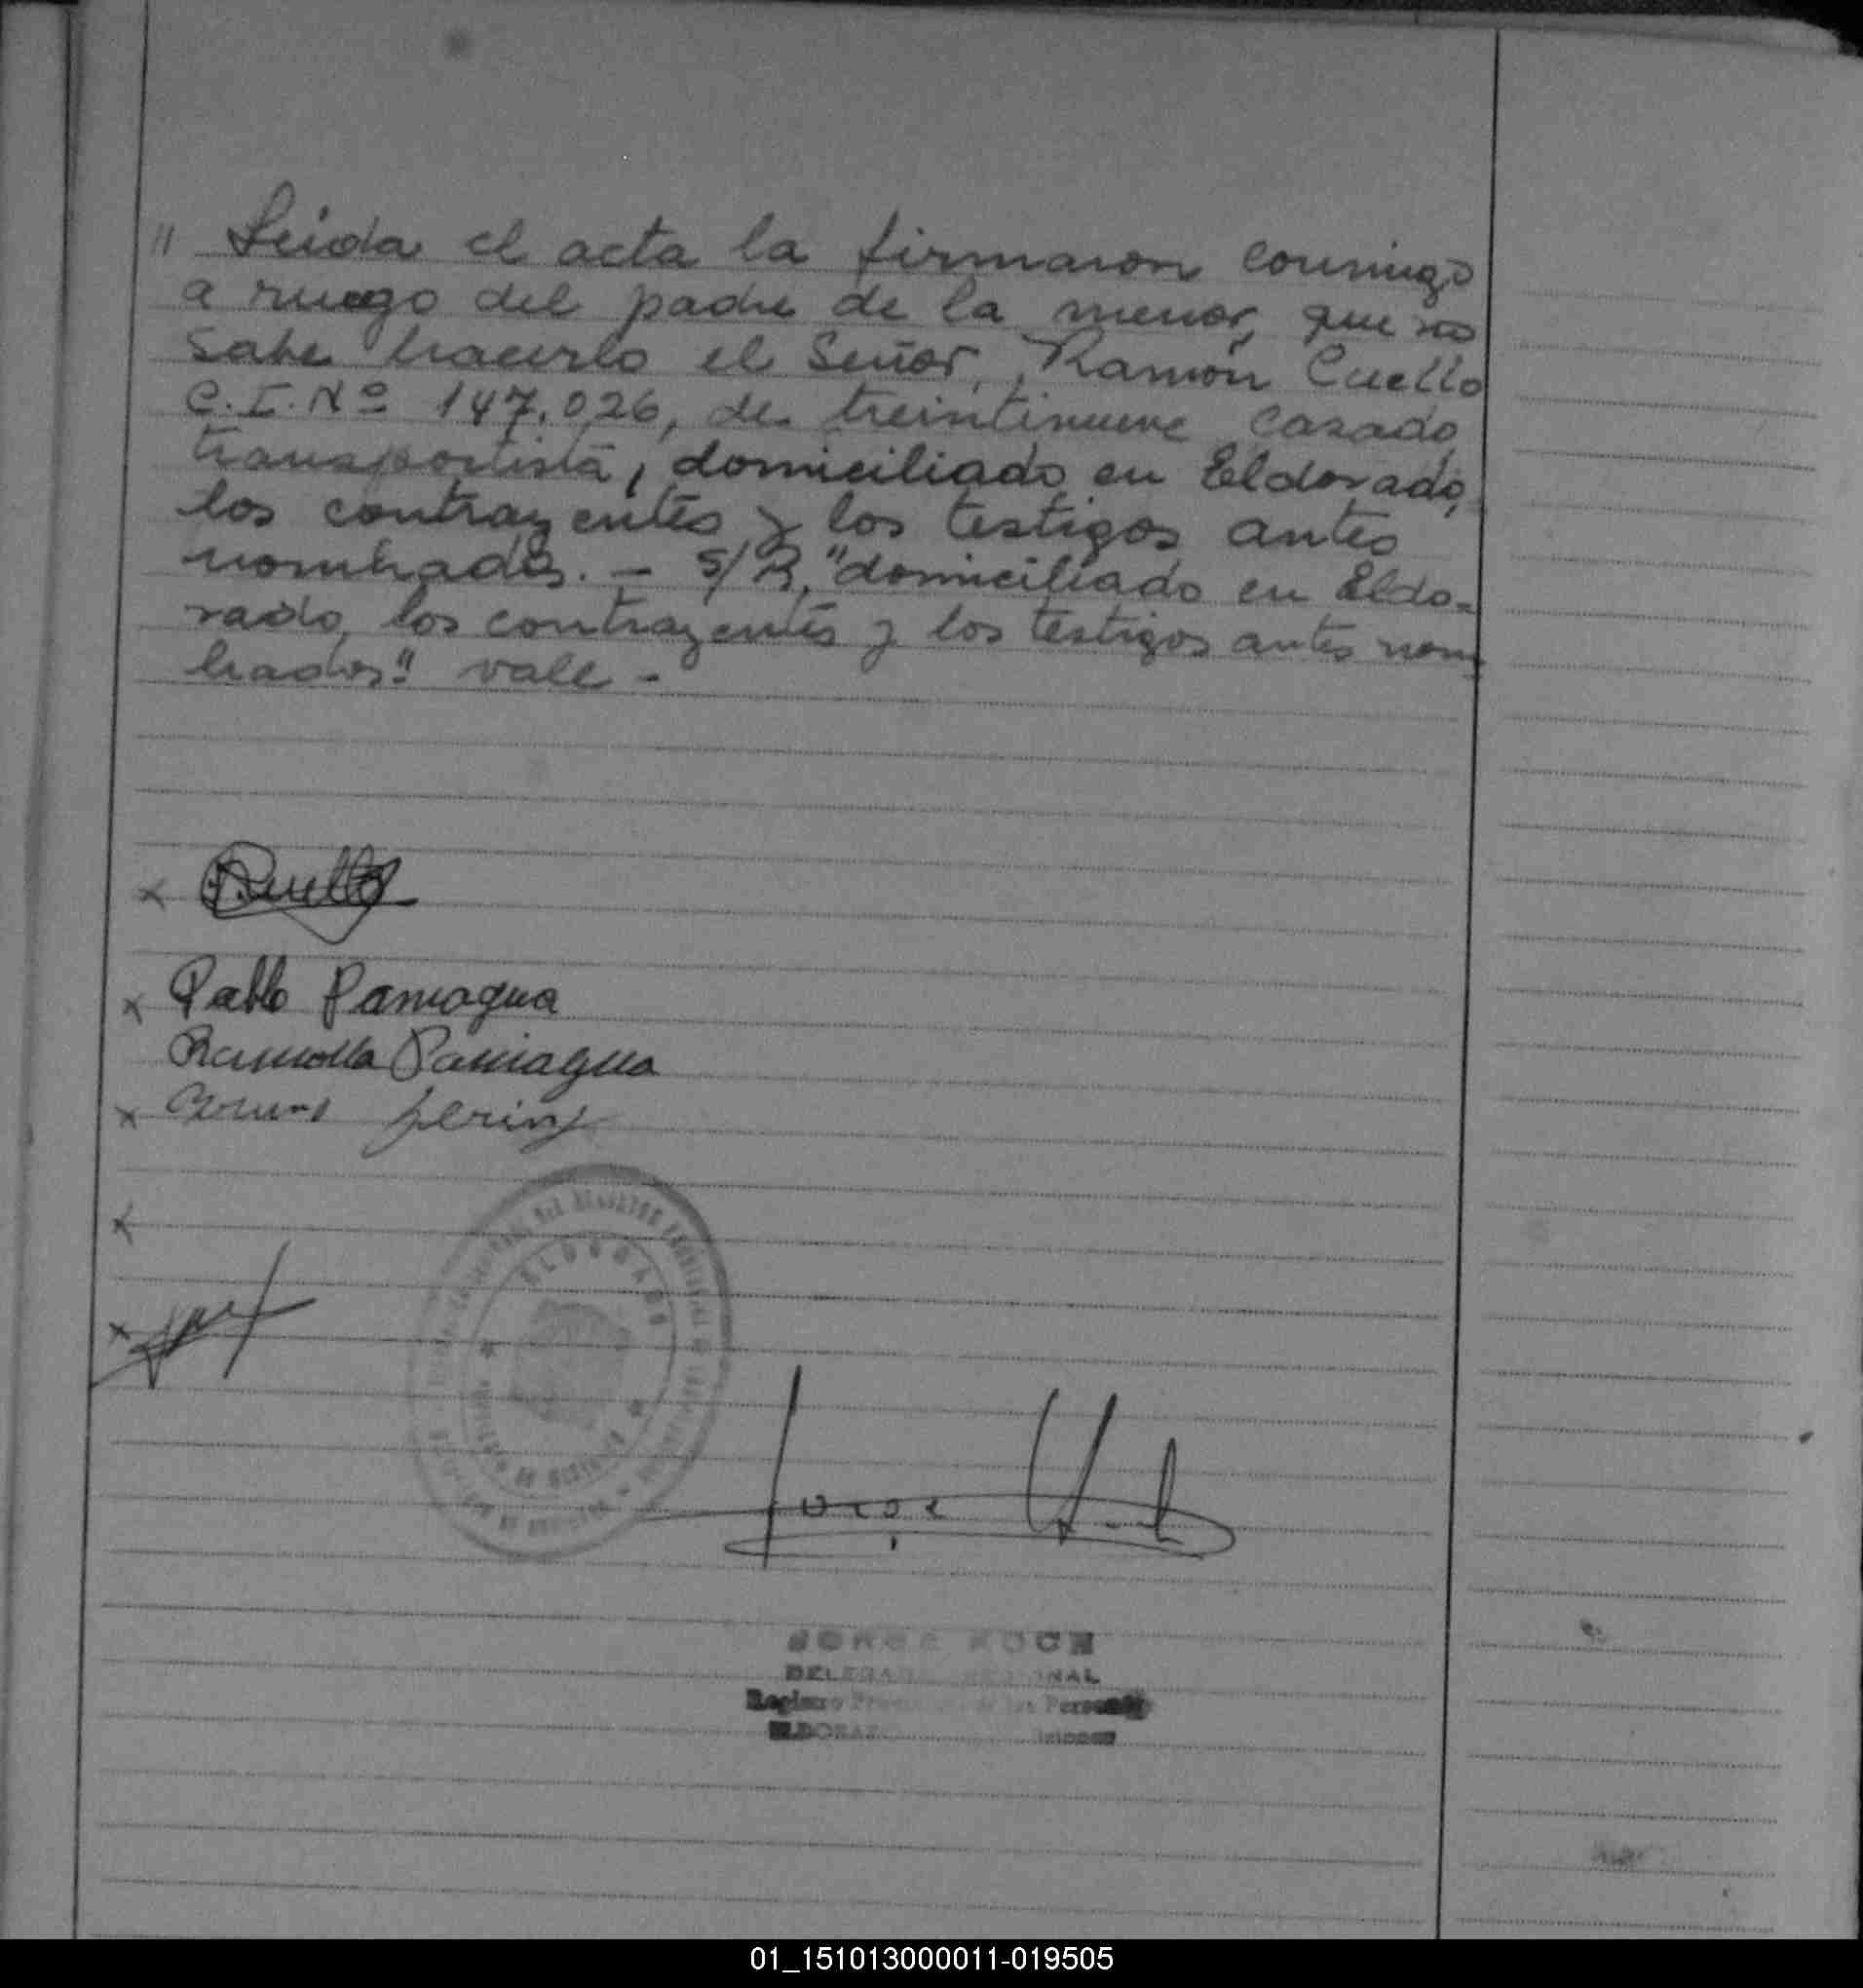 " Leida el acta la firmaron conmigo
a ruego del padre de la menor, que no
sabe hacerlo el Señor, Ramón Cuello
C.I. Nº 147.026, de treintinueve casado,
transportista, domiciliado en Eldorado,
los contrayentes y los testigos antes
nombrados. - S/R. "domiciliado en Eldo-
rado, los contrayentes y los testigos antes nom
brados" vale -
x Cuello
x Pablo Paniagua
Ramona Paniagua
x
x
x
ELDORADO
Jorge Koch
JORGE KOCH
DELEGADO REGIONAL
Registro de las Personas
ELDORADO Misiones
01_151013000011-019505